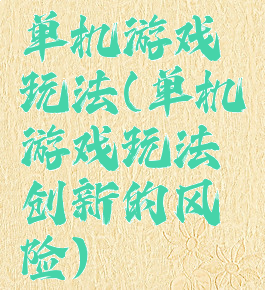 单机游戏
玩法(单机
游戏玩法
创新的风
险)